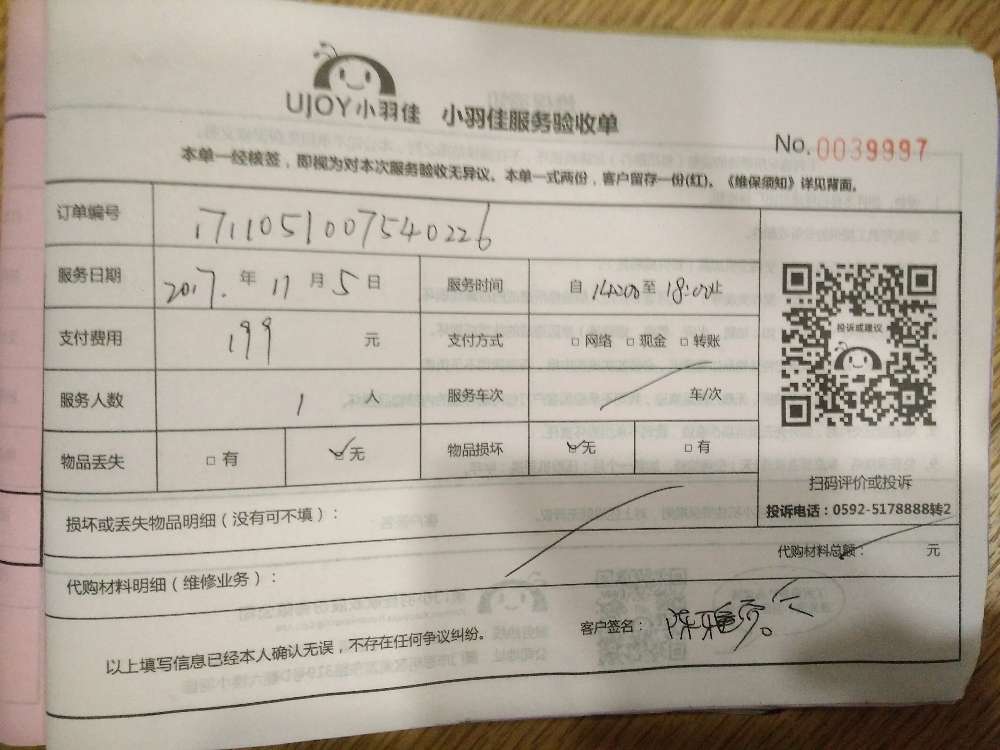 UJOY小羽佳 小羽佳服务验收单
No. 0039997
本单一经核签，即视为对本次服务验收无异议。本单一式两份，客户留存一份(红)。《维保须知》详见背面。
订单编号 1711051007540226
服务日期 2017. 年 11 月 5 日 服务时间 自 14:00 至 18:00 止
支付费用 199 元 支付方式 □ 网络 □ 现金 □ 转账
投诉或建议
服务人数 1 人 服务车次 车/次
物品丢失 □ 有 ☑ 无 物品损坏 ☑ 无 □ 有
扫码评价或投诉
投诉电话：0592-5178888转2
损坏或丢失物品明细（没有可不填）：
代购材料总额： 元
代购材料明细（维修业务）：
客户签名：
以上填写信息已经本人确认无误，不存在任何争议纠纷。